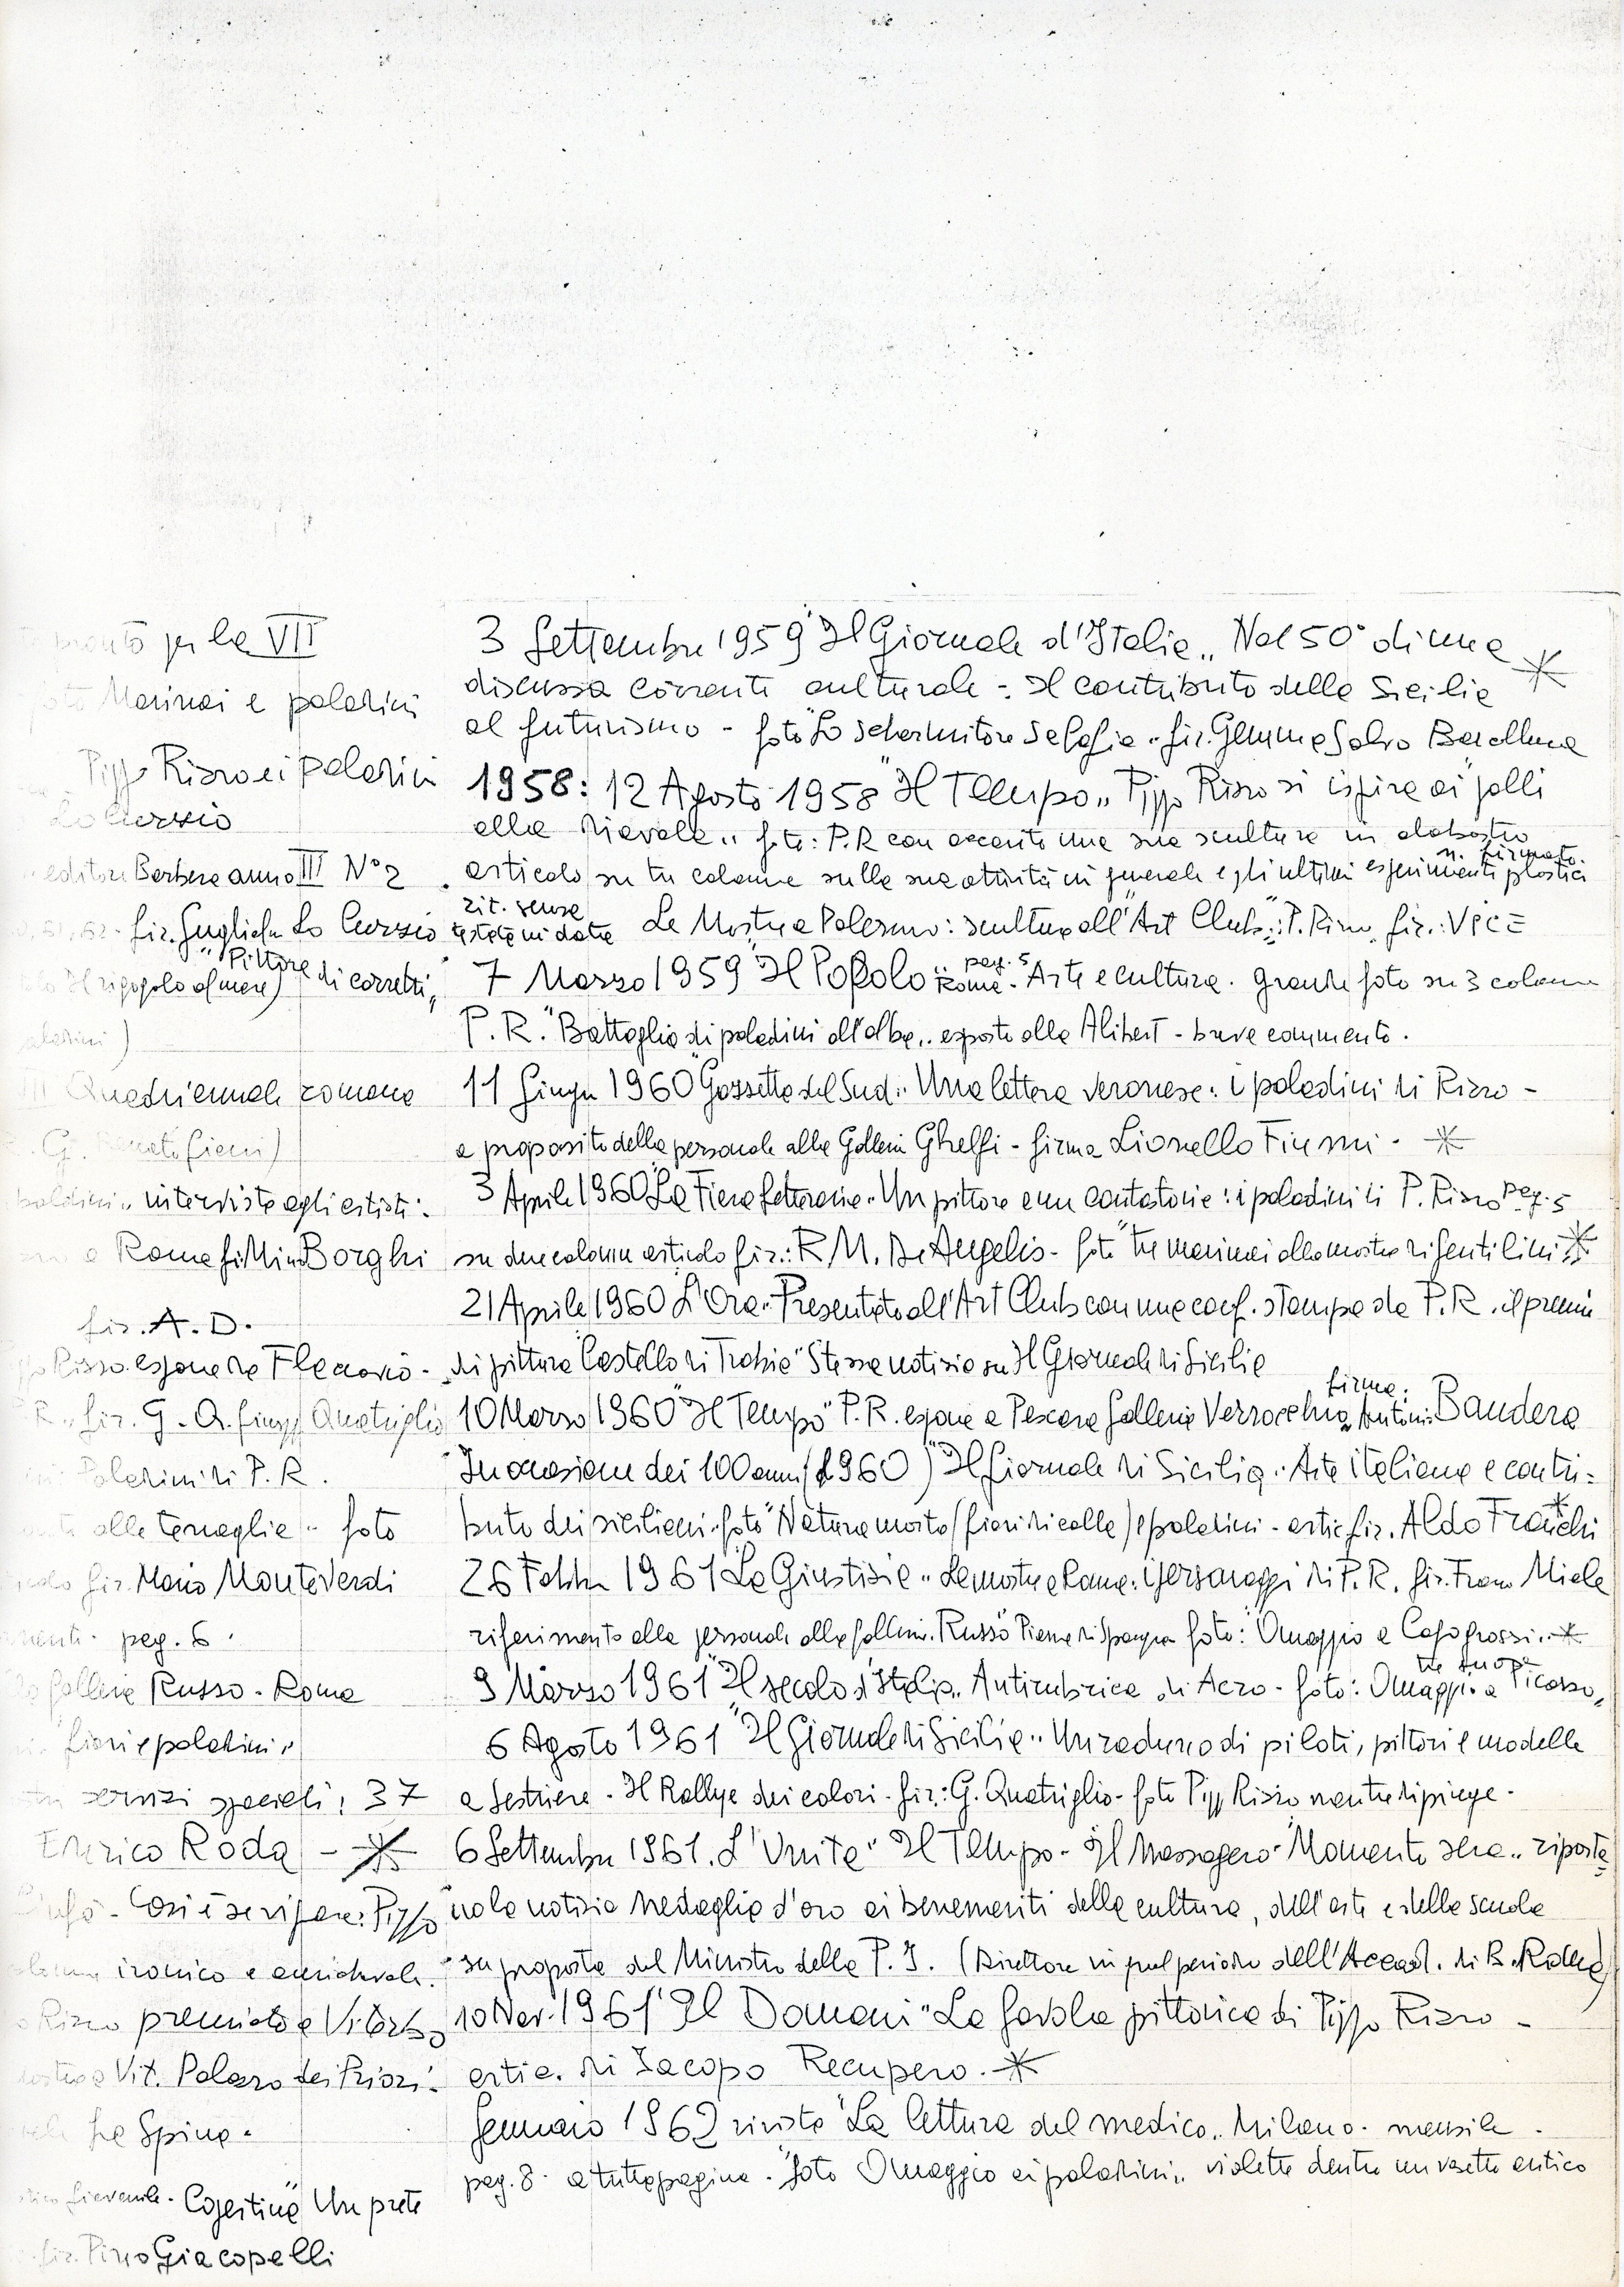 per la VII
Marinai e paladini
Pippo Rizzo e i paladini
Lo Curzio
editore Barbera anno III N° 2
fir. Guglielmo Lo Curzio
"Pittore di carretti„
Il rigogolo al mare)
Quadriennale romana
interviste agli artisti:
a Roma Borghi
fir. A. D.
Rizzo espone da Flaccovio -
P. R. „ fir. G. Q. Quatriglio
Paladini di P. R.
alle tenaglie „ foto
fir. Mario Monteverdi
pag. 6.
Galleria Russo - Roma
fiori e paladini „
servizi speciali; 37
Enrico Roda -
Così è se vi pare: Pippo
ironico e amichevole.
Rizzo premiato a Viterbo
a Vit. Palazzo dei Priori:
La Spina.
Cogestino "Un prete
fir. Pino Giacopelli
3 Settembre 1959 "Il Giornale d'Italia„ Nel 50° di una
discussa corrente culturale - Il contributo della Sicilia
al futurismo - foto "Lo schermitore Salafia„ fir. Gemma Salvo Barcellona
1958: 12 Agosto 1958 "Il Tempo„ Pippo Rizzo si ispira ai galli
alla diavola„ foto: P. R con accanto una sua scultura in alabastro
n. firmato.
articolo su tre colonne sulla sua attività in generale e gli ultimi esperimenti plastici
rit. senza
testata ni data La Mostra a Palermo: sculture all'Art Club„: P. Rizzo fir.: Vice
7 Marzo 1959 "Il Popolo„ Roma - pag. 5 Arte e cultura. grande foto su 3 colonne
P. R. "Battaglia di paladini all'alba„ esposto alla Alibert - breve commento.
11 Giugn 1960 Gazzetta del Sud: Una lettera veronese: i paladini di Rizzo -
a proposito della personale alla Galleria Ghelfi - firma Lionello Fiumi -
3 Aprile 1960 "La Fiera letteraria„ Un pittore e un cantastorie: i paladini di P. Rizzo pag. 5
su due colonne articolo fir.: R. M. De Angelis - foto "tre marinai alla mostra di fentilini
21 Aprile 1960 L'Ora„ Presentato all'Art Club con una conf. stampa da P. R. il premio
di pittura "Castello di Trabia" Stessa notizia su Il Giornale di Sicilia
10 Marzo 1960 "Il Tempo" P. R. espone a Pescara Galleria Verrocchio, firma: Antonio Bandera
In occasione dei 100 anni (1960) "Il Giornale di Sicilia„ Arte italiana e contri=
buto dei siciliani - foto "Natura morta (fiori di calle) e paladini - artic fir. Aldo Franchi
26 Febbr 1961 "La Giustizia„ Le mostre a Roma: i personaggi di P. R. fir. Franco Miele
riferimento alla personale alla galleria Russo Piazza di Spagna foto: "Omaggio a Capogrossi„
9 Marzo 1961 "Il secolo d'Italia„ Antirubrica di Acro - foto: Omaggio a Picasso„
6 Agosto 1961 "Il Giornale di Sicilia„ Un raduno di piloti, pittori e modelle
a Sestriere - Il Rallye dei colori - fir: G. Quatriglio - foto Pippo Rizzo mentre dipinge -
6 Settembre 1961. L'Unità" Il Tempo - Il Messagero - Momento sera „ riporta
no la notizia medaglia d'oro ai benemeriti della cultura, dell'arte e della scuola
su proposta del Ministro della P. I. (Direttore in quel periodo dell'Accad. di B. Roma)
10 Nov. 1961 "Il Domani" La favola pittorica di Pippo Rizzo -
artic. di Iacopo Recupero.
Gennaio 1962 rivista "La lettura del medico„ Milano - mensile -
pag. 8 - a tutta pagina - "foto Omaggio ai paladini„ violette dentro un vasetto antico